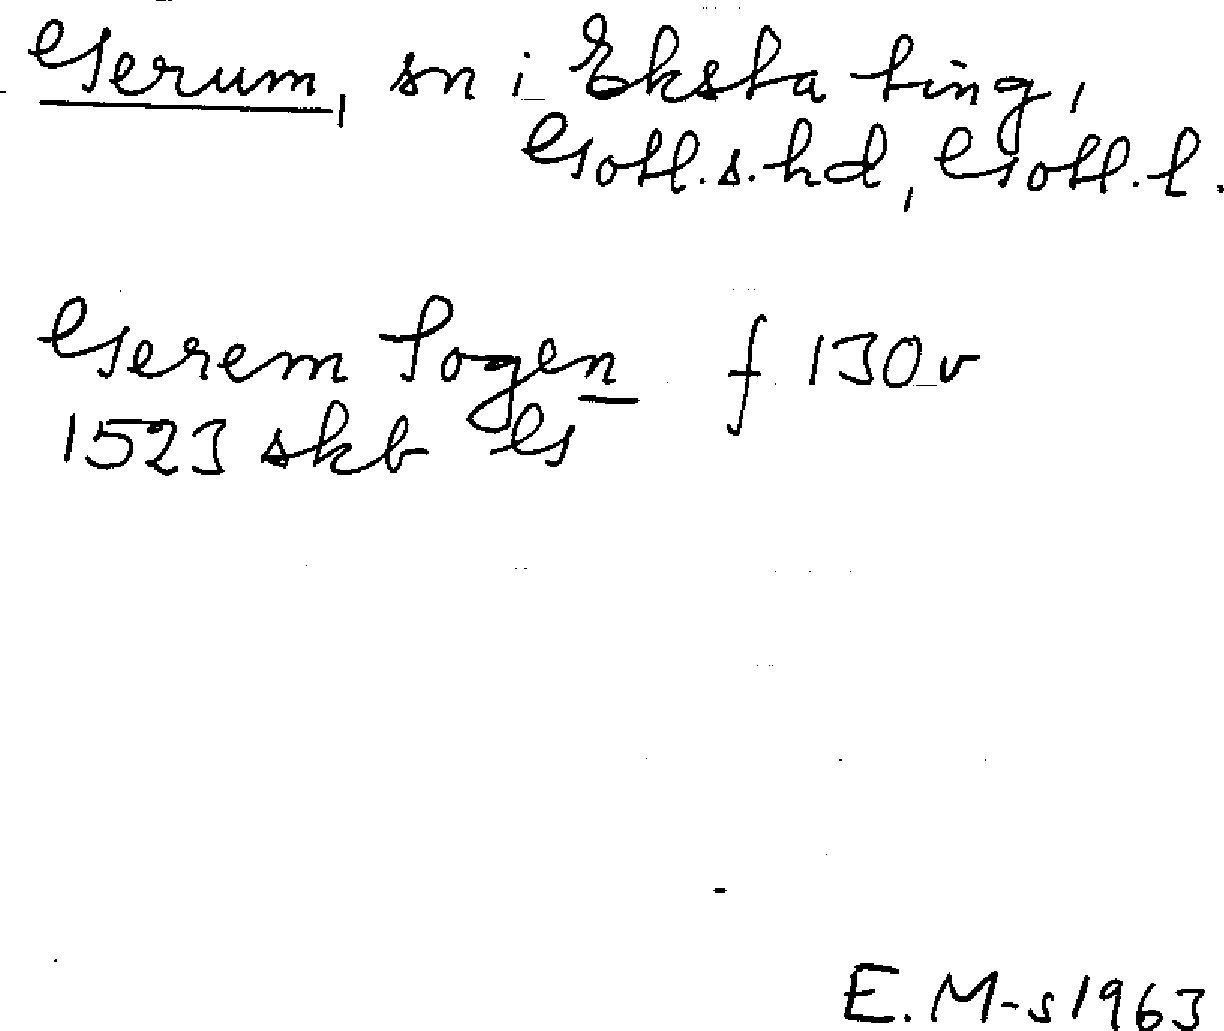 Gerum, sn i Eksta ting,
Gotl.s.hd, Gotl.l.
Gerem Sogen f 130v
1523 skb G
E.M-s 1963